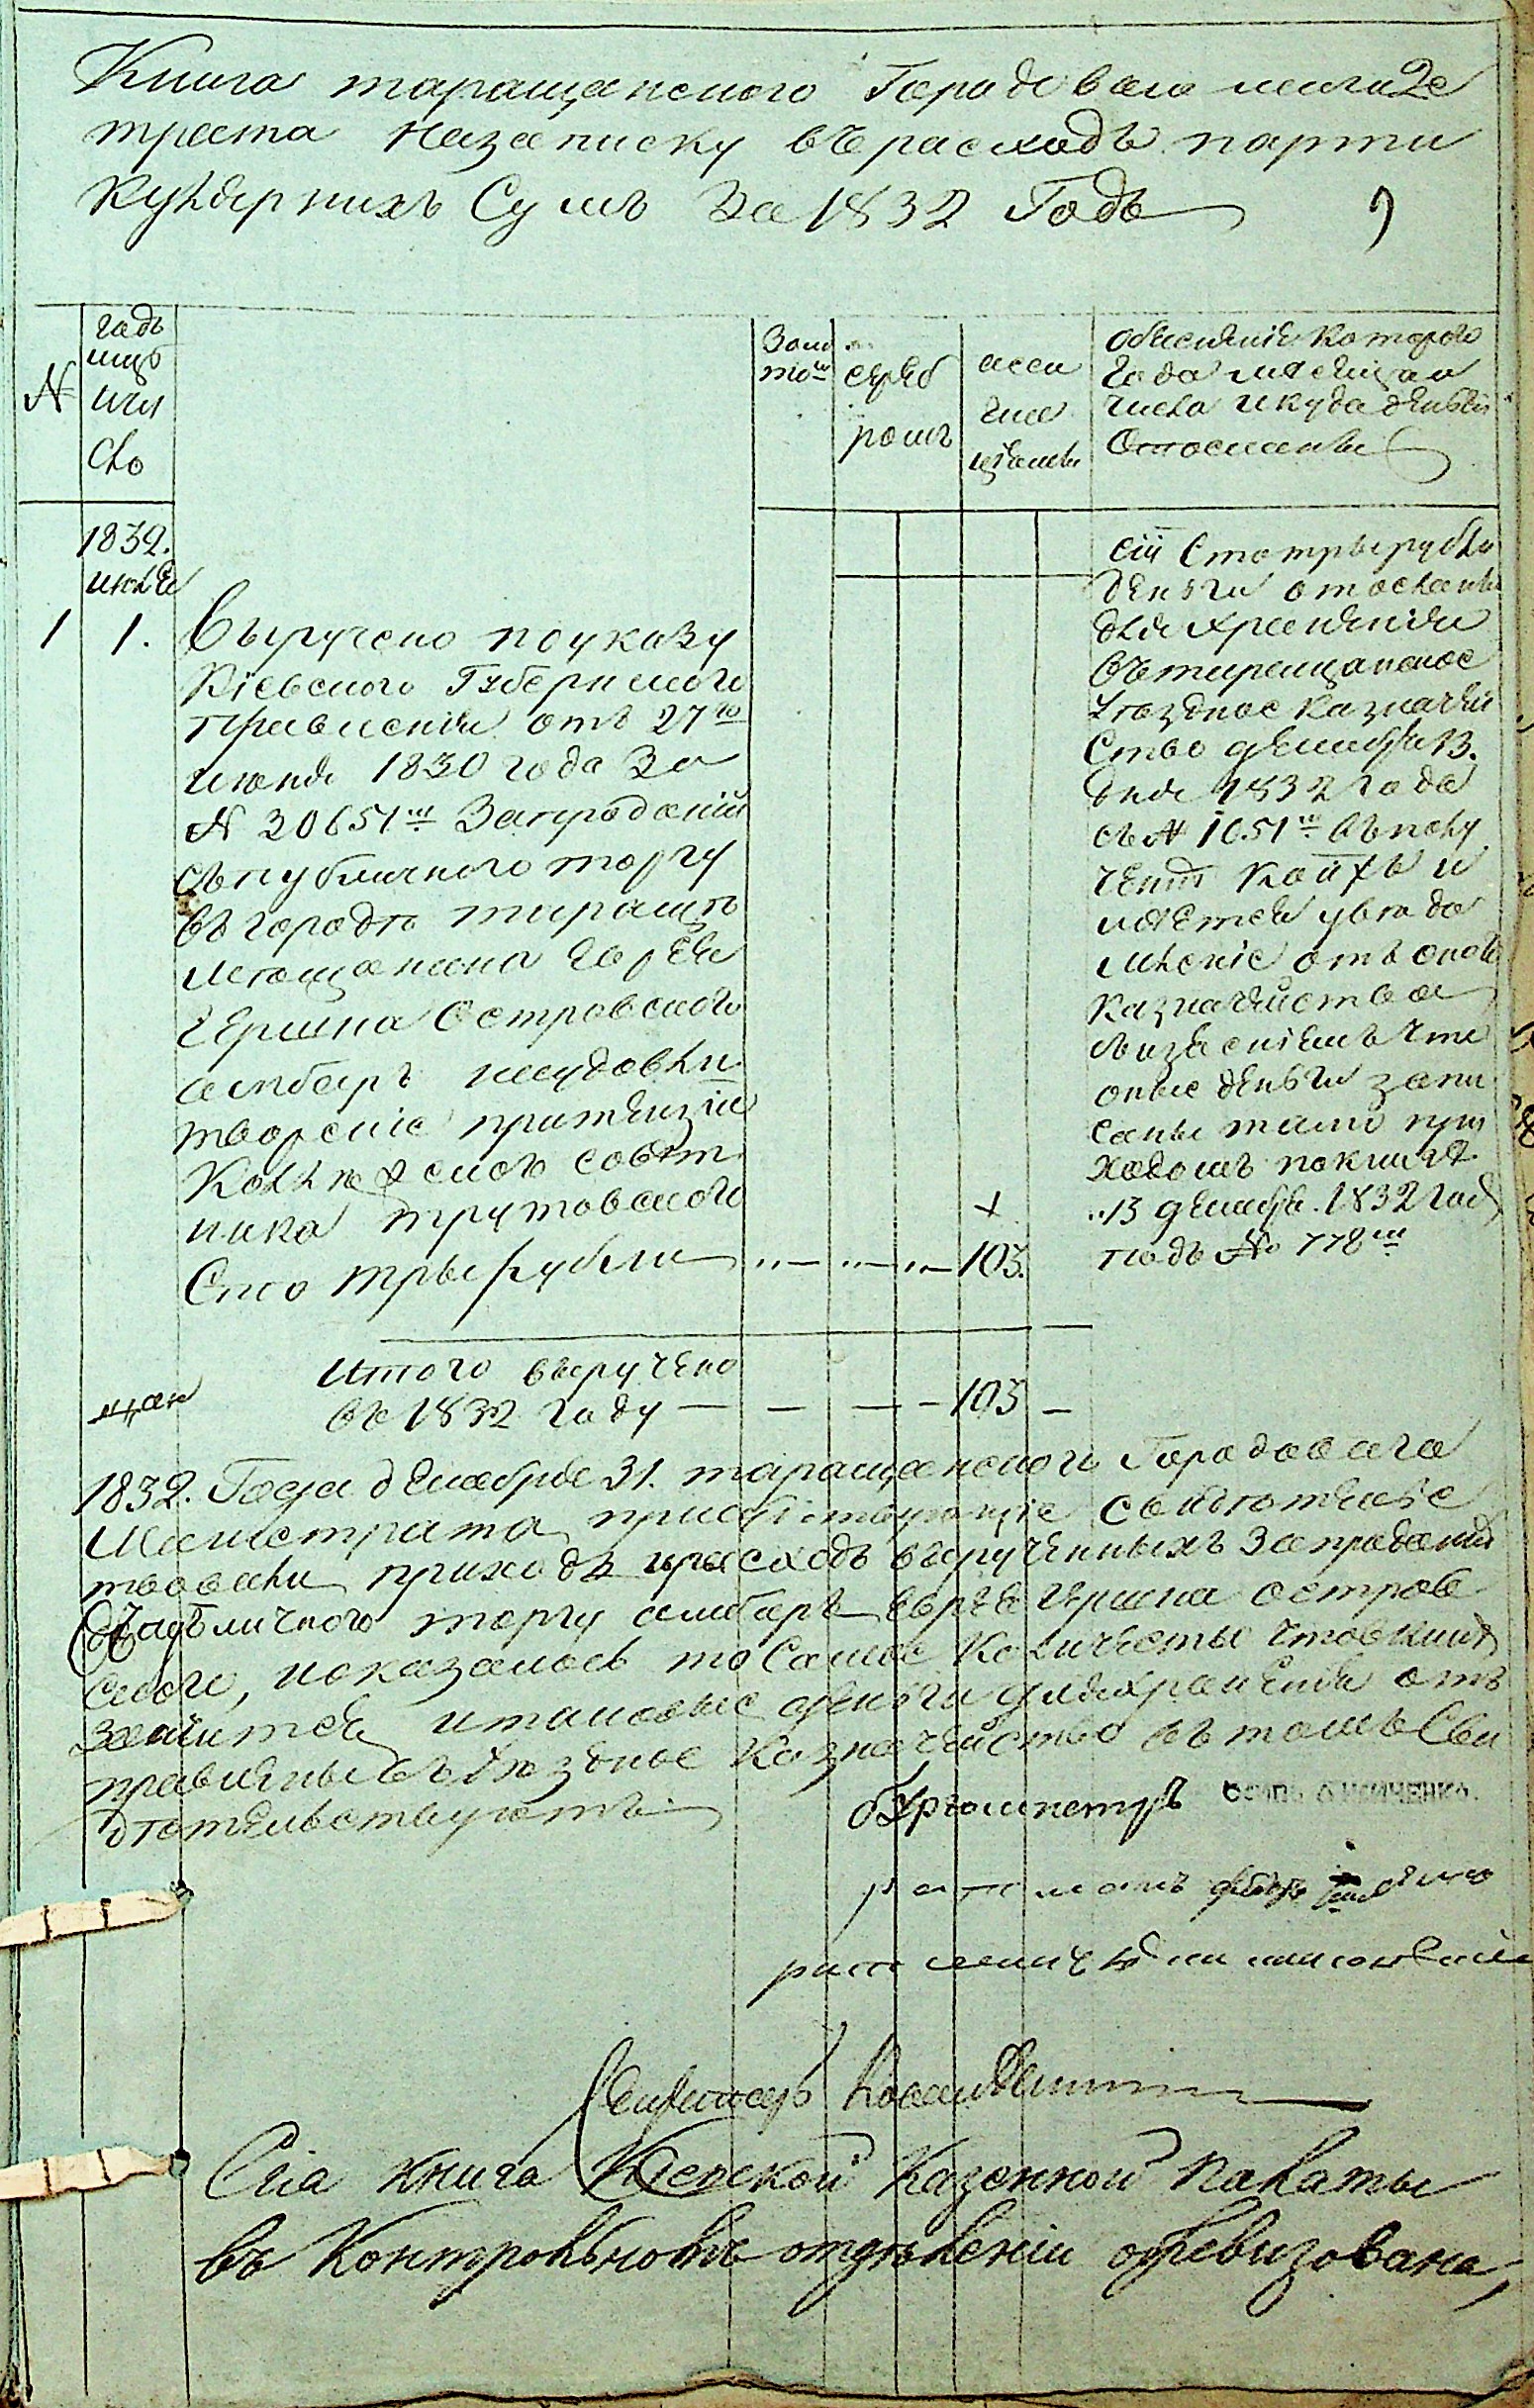 Книга таращанского Городоваго маги
2
трата Назаписку въ расходъ парти
кулярнихъ Сумъ За 1832 Годъ
N
годъ
мцъ
ичи
сло
Золо
то
сереб
ромъ
асси
гна
ціями
обясненіе Которого
Года мѣсяца и
числа и куда деньги
Отосланы
1832.
июля
1 1. Выручено по указу
Кіевского Губернского
Правленія отъ 27го
июня 1830 года За
N 20651м Запроданій
съ публичного торгу
въ городѣ таращѣ
мѣщанина еврея
Гершка Островского
амбаръ наудовли
твореніе притензіи
Коллежского совѣт
ника трутовского
Сто три рубли 103.
сіи Сто три рубли
деньги отосланы
для храненія
въ таращанское
Уѣздное Казначей
Ство декабря 13.
дня 1832 года
съ N 1051м въ полу
ченіи Коихъ и
мѣется увѣдо
мленіе отъ оного
Казначейства
съ изяснѣемъ что
оные деньги запи
саны тамо при
ходомъ по книгѣ
13 декабря 1832 год
подъ No 778м
Итого выручено
въ 1832 году 103
1832. Года декабря 31. таращанского Городоваго
Магистрата присутствующіе свидѣтельс
твовали приходъ и расходъ вырученныхъ За проданій
Съ публичного торгу амбаръ еврея Гершка остров
ского, показалось то Самое Количество что в книгѣ
значится и таковые деньги для храненія отъ
правлены въ Уѣздное Казначейство въ томъ Сви
дѣтельствуютъ
бургомистръ
ратманъ
ратман
Секретарь
Сія книга Кіевской Казенной Палаты
въ Контрольномъ отдѣленіи обревизована,